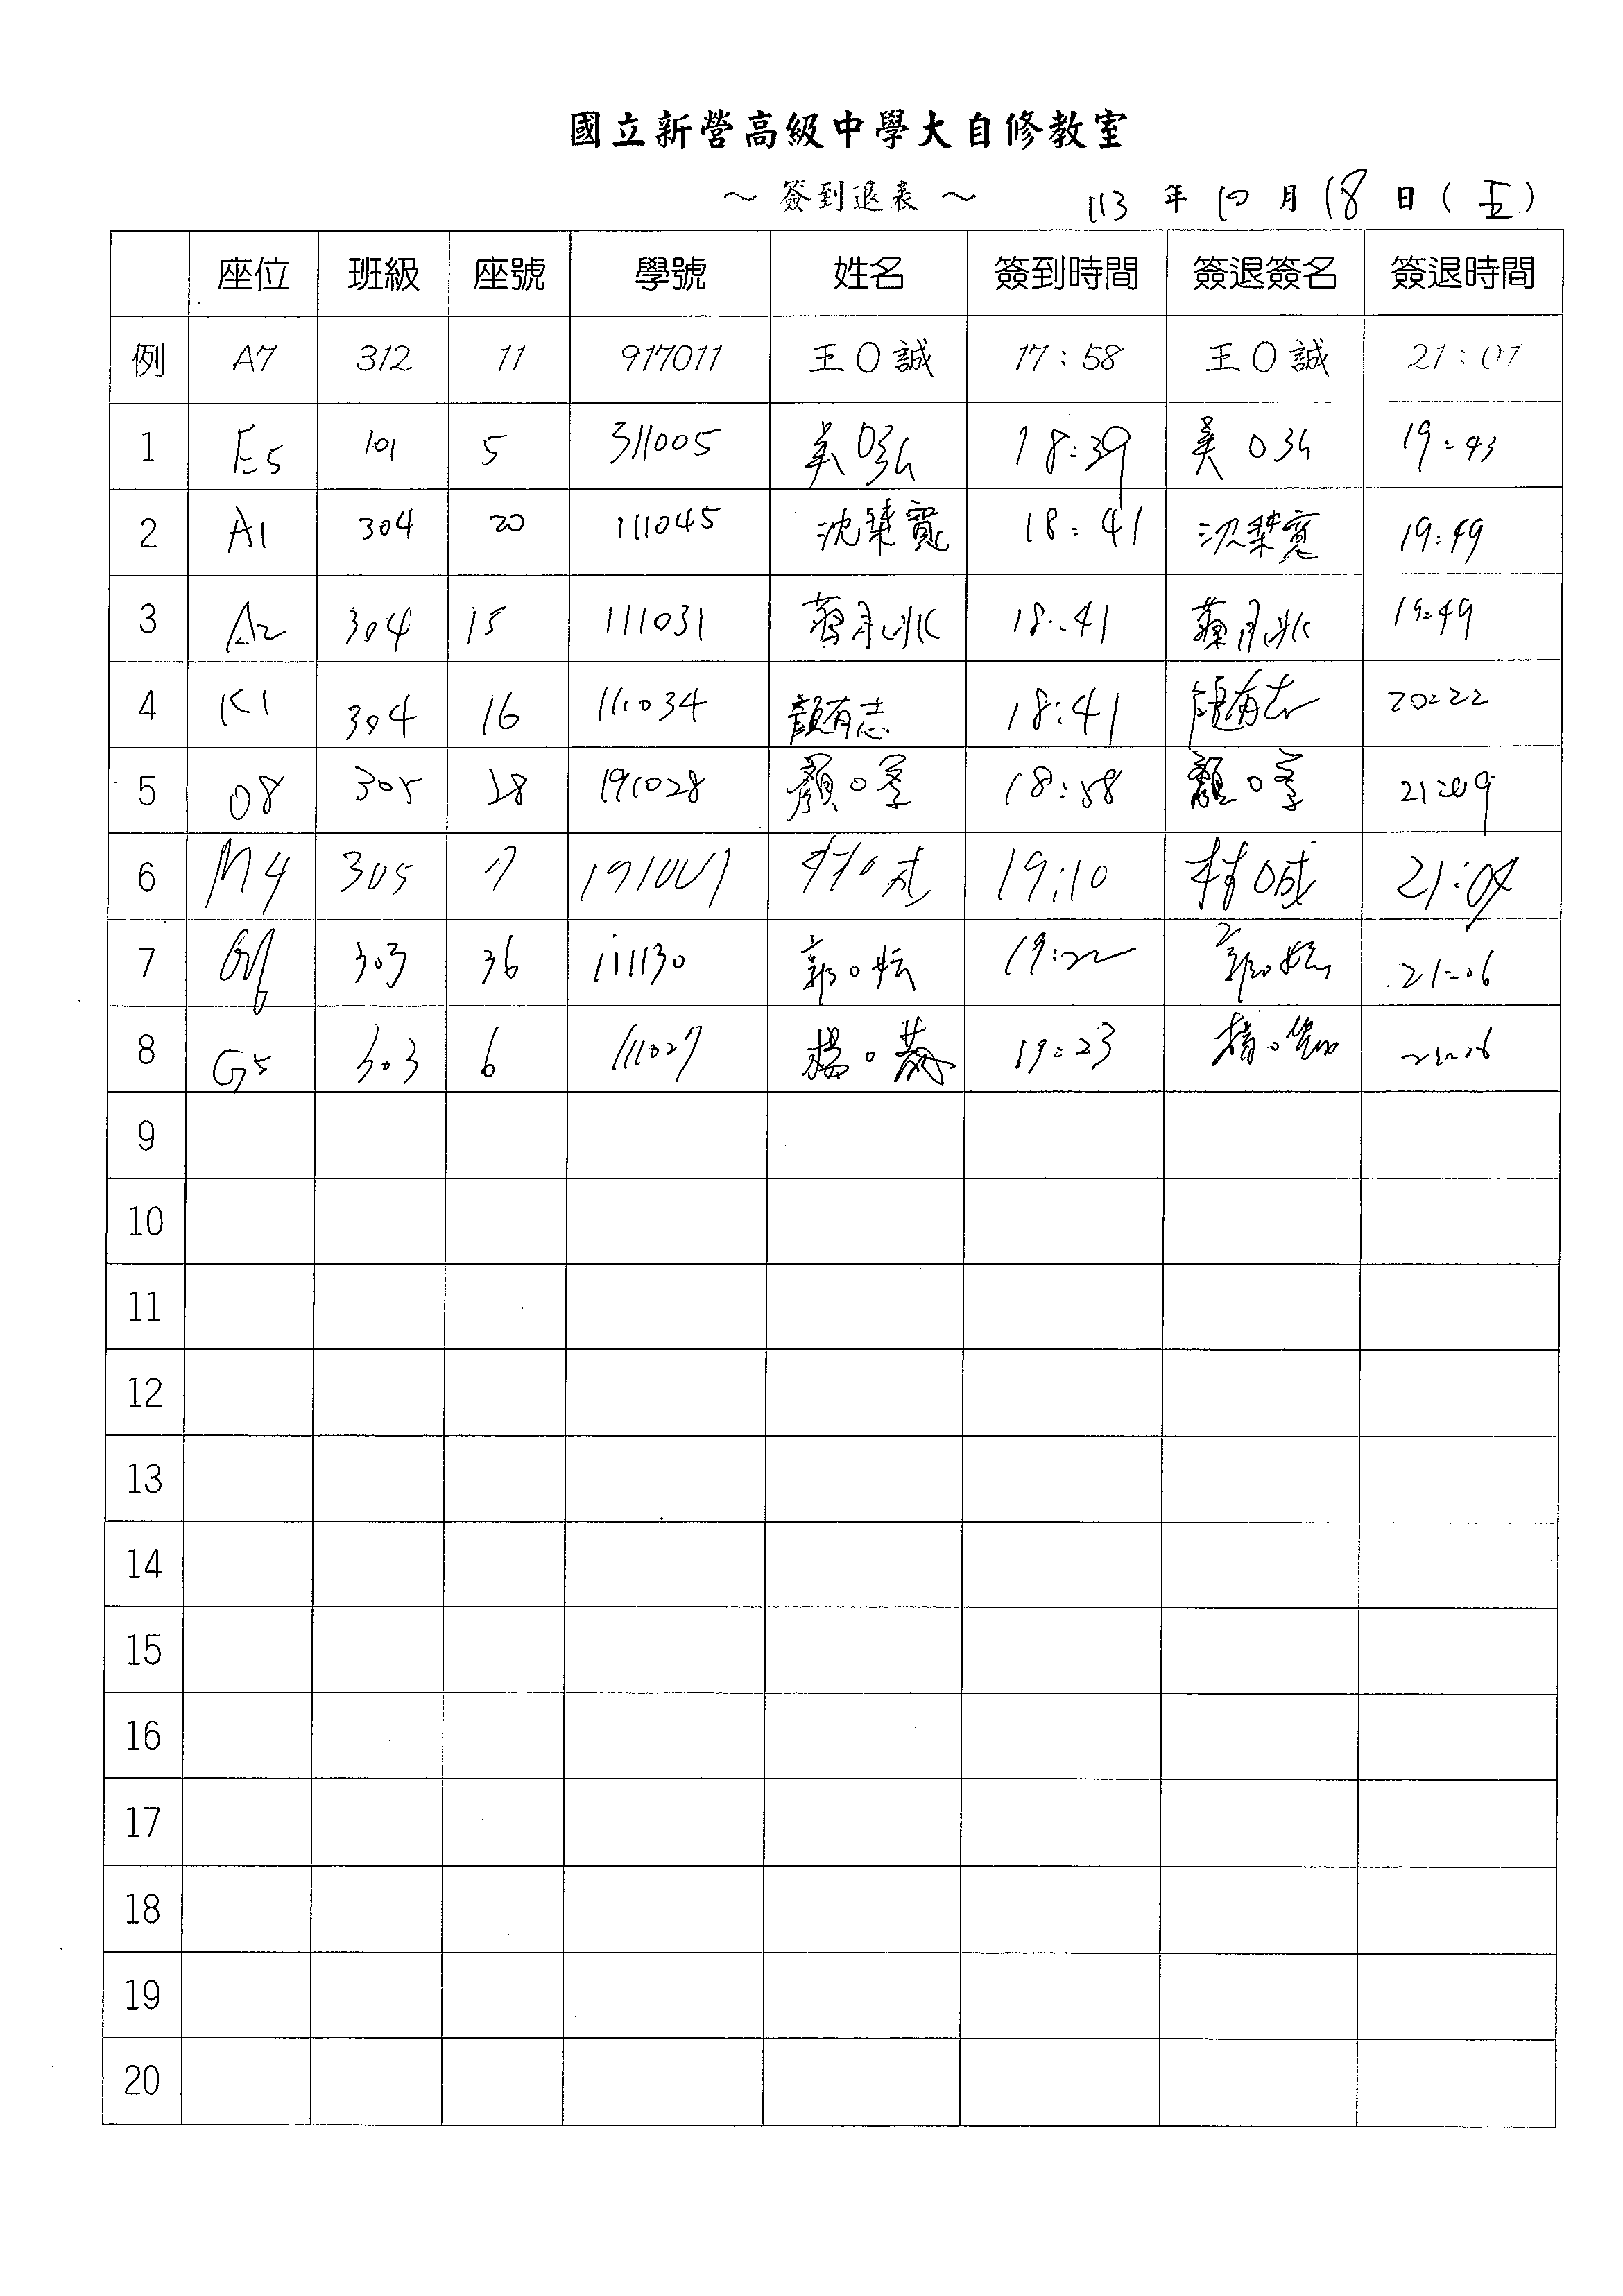 國立新營高級中學大自修教室
～ 簽到退表 ～ 113 年 10 月 18 日 ( 五 )
座位 班級 座號 學號 姓名 簽到時間 簽退簽名 簽退時間
例 A7 312 11 917011 王〇誠 17:58 王〇誠 21:01
1 E5 101 5 311005 吳〇弘 18:39 吳〇弘 19:43
2 A1 304 20 111045 沈 寬 18:41 沈 寬 19:49
3 A2 304 15 111031 18:41 19:49
4 K1 304 16 111034 顏有志 18:41 顏有志 20:22
5 O8 305 28 191028 顏〇 18:58 顏〇 21:09
6 M4 305 7 林〇成 19:10 林〇成
7 303 36 111130 郭〇妘 19:22 郭〇妘 21:06
8 G5 303 6 111027 楊〇 19:23 楊〇 21:06
9
10
11
12
13
14
15
16
17
18
19
20